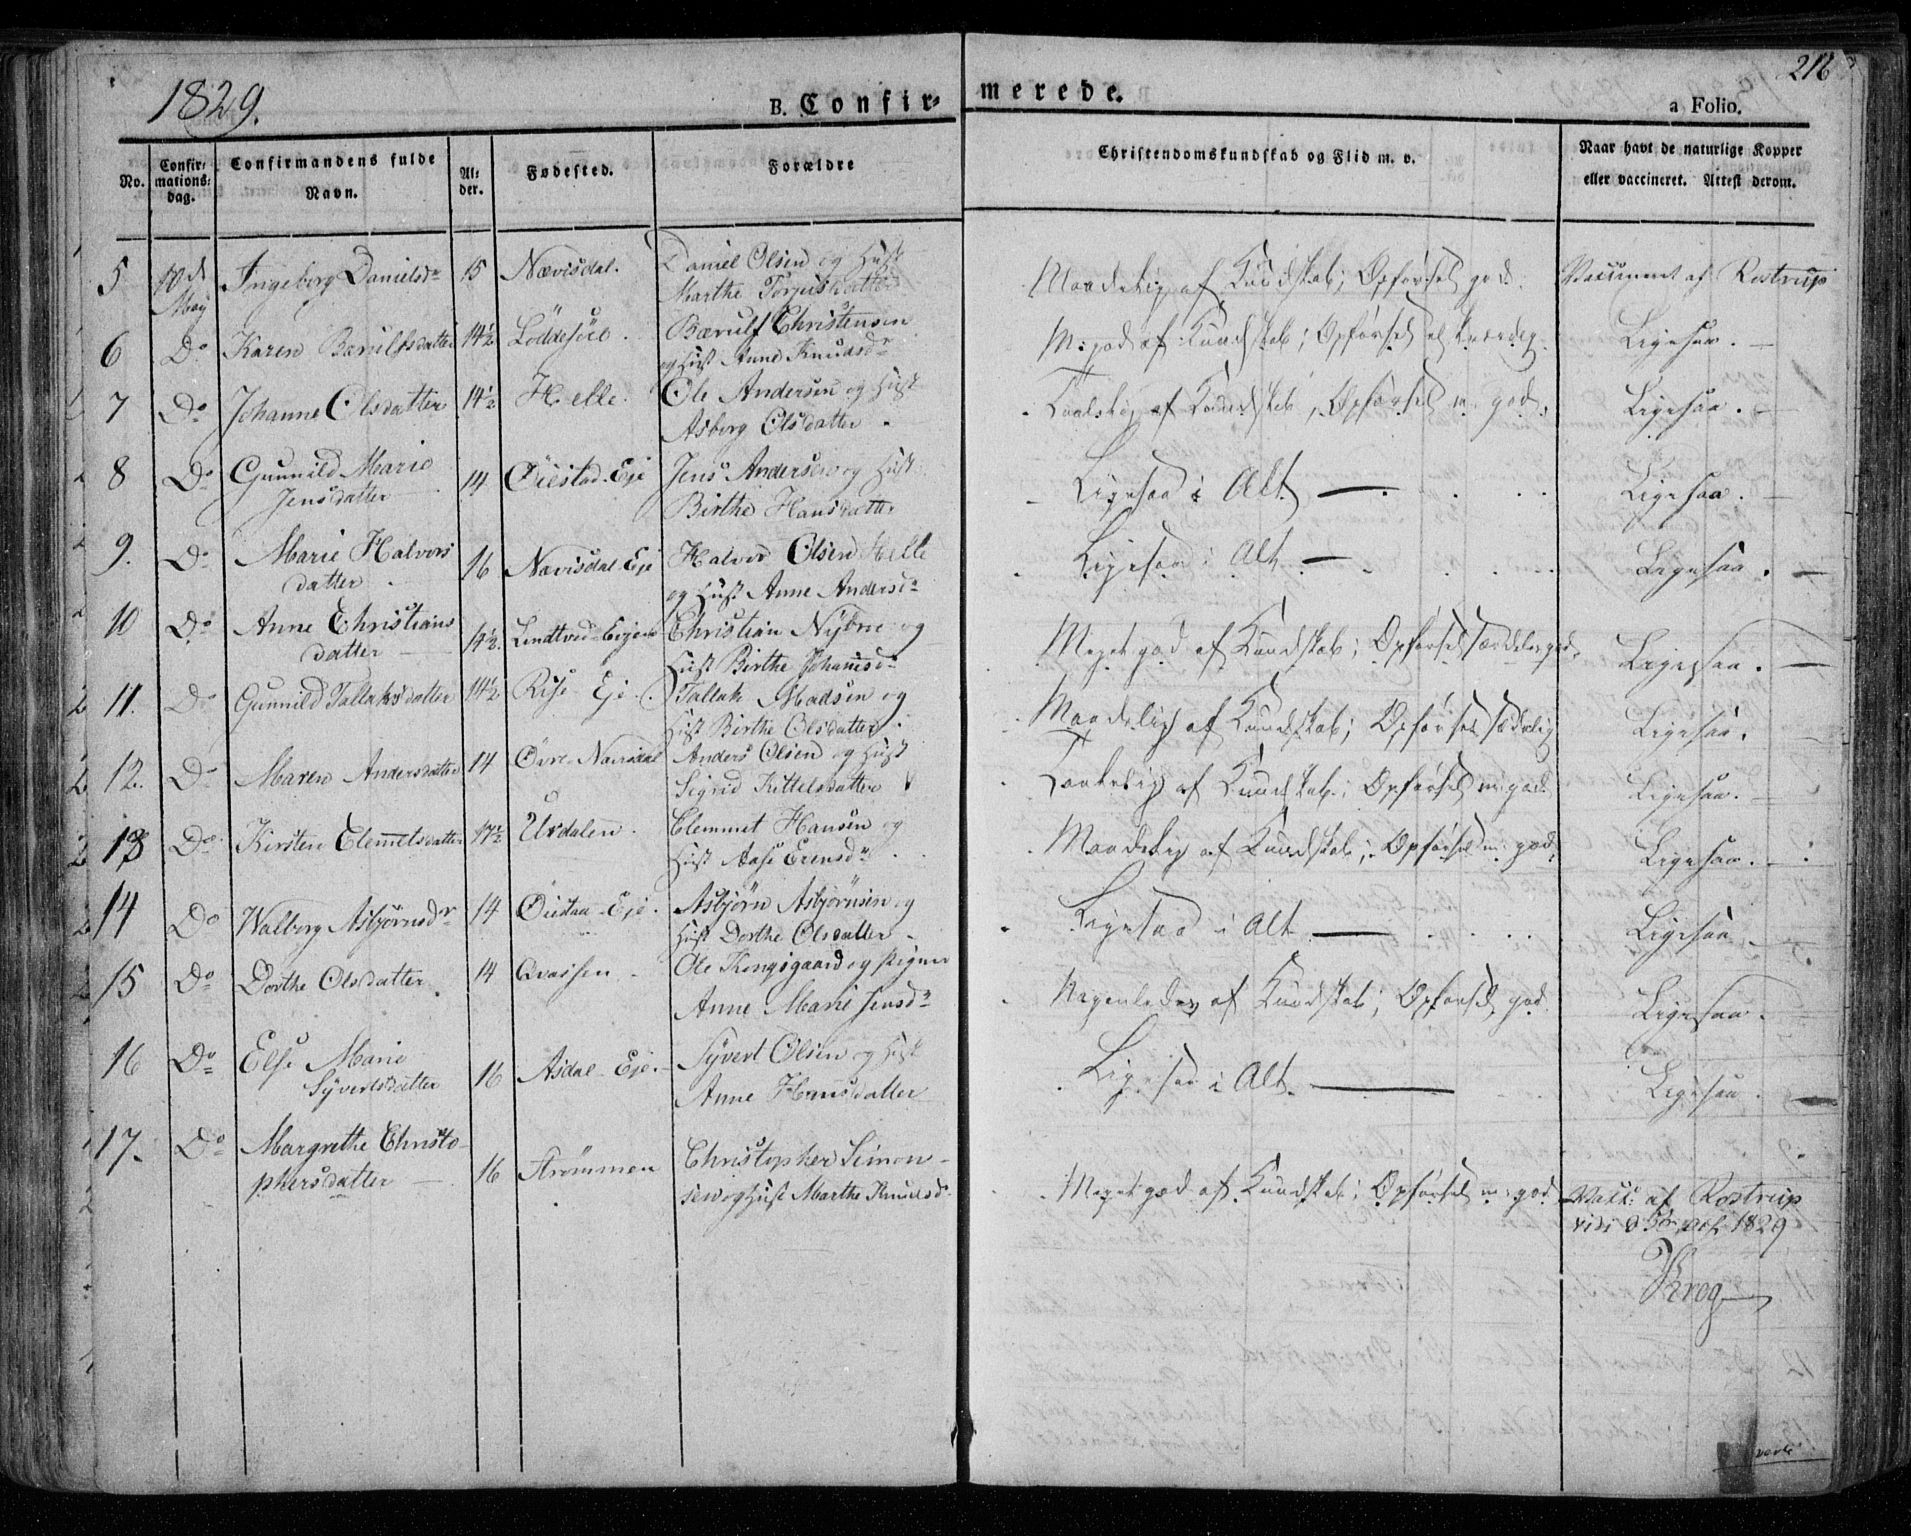 1829.
B. Confir-
merede.
216
a Folio.
No.
Confir-
mations-
dag.
Confirmandens fulde
Navn.
Al-
der.
Fødested.
Forældre
Christendomskundskab og Flid m. v.
Naar havt de naturlige Kopper
eller vaccineret. Attest derom.
5 10 d Ingeborg Danielsdr 15 Nævisdal. Daniel Olsen og Hust Maadelig af Kundskab; Opførsel god. Vaccineret af Rostrup
May Marthe Torjusdatter
6 Do Karen Bærulfsdatter 14½ Løddesøe. Bærulf Christensen M: god af Kundskab; Opførsel Ligesaa.
og Hust Anne Knudsdr
7 Do Johanne Olsdatter 14½ Helle. Ole Andersen og Hust af Kundskab, Opførsel m. god. Ligesaa.
Asborg Olsdatter.
8 Do Gunnild Marie 14 Øiestad-Eje Jens Andersen og Hust Ligesaa i Alt Ligesaa.
Jensdatter Birthe Hansdatter
9. Do Marie Halvors 16 Navisdal-Eje Halvor Olsen Helle Ligesaa i Alt Ligesaa.
datter og Hust Anne Andersdr
10 Do Anne Christians 14½. Lindtved- Christian Nybroe og Meget god af Kundskab; Opførsel særdeles god. Ligesaa.
datter Hust Birthe Johansdr
11. Do Gunnild Tallaksdatter 14½ Rise Eje Tallak Madsen og Maadelig af Kundskab; Opførsel sædelig Ligesaa.
Hust Birthe Olsdatter.
12. Do Maren Andersdatter 14 Øvre-Navisdal Anders Olsen og Hust af Kundskab; Opførsel m: god Ligesaa.
Sigrid Kittelsdatter
13 Do Kirsten Clemmetsdatter 17½ Urdalen. Clemmet Hansen og Maadelig af Kundskab; Opførsel m: god. Ligesaa.
Hust Aase Evensdr
14 Do Walborg Asbjørnsdr 14 Øiestad-Eje. Asbjørn Asbjørnsen og Ligesaa i Alt Ligesaa
Hust Dorthe Olsdatter
15 Do Dorthe Olsdatter 14 Ole Kongsgaard og Pigen Nogenledes af Kundskab; Opførsel god. Ligesaa.
Anne Marie Jensdr
16 Do Else Marie 16 Asdal-Eje. Syvert Olsen og Hust Ligesaa i Alt. Ligesaa.
Syvertsdatter Anne Hansdatter
17. Do Margrethe Christo- 16 Strømmen Christopher Simon- Meget god af Kundskab; Opførsel m: god Vacc: af Rostrup
phersdatter sen og Hust Marthe Knudsd vidi d 5te Oct 1829
Krog
verte